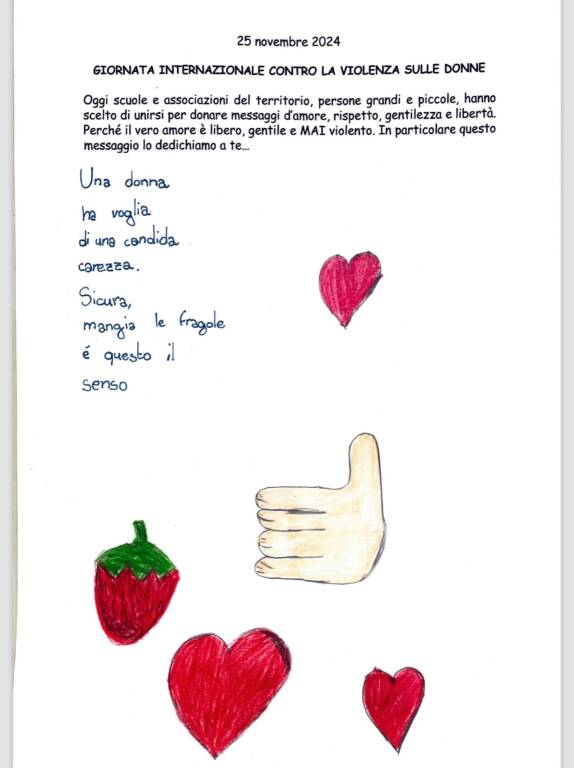 25 novembre 2024
GIORNATA INTERNAZIONALE CONTRO LA VIOLENZA SULLE DONNE
Oggi scuole e associazioni del territorio, persone grandi e piccole, hanno
scelto di unirsi per donare messaggi d'amore, rispetto, gentilezza e libertà.
Perché il vero amore è libero, gentile e MAI violento. In particolare questo
messaggio lo dedichiamo a te...
Una donna
ha voglia
di una candida
carezza.
Sicura,
mangia le fragole
é questo il
senso